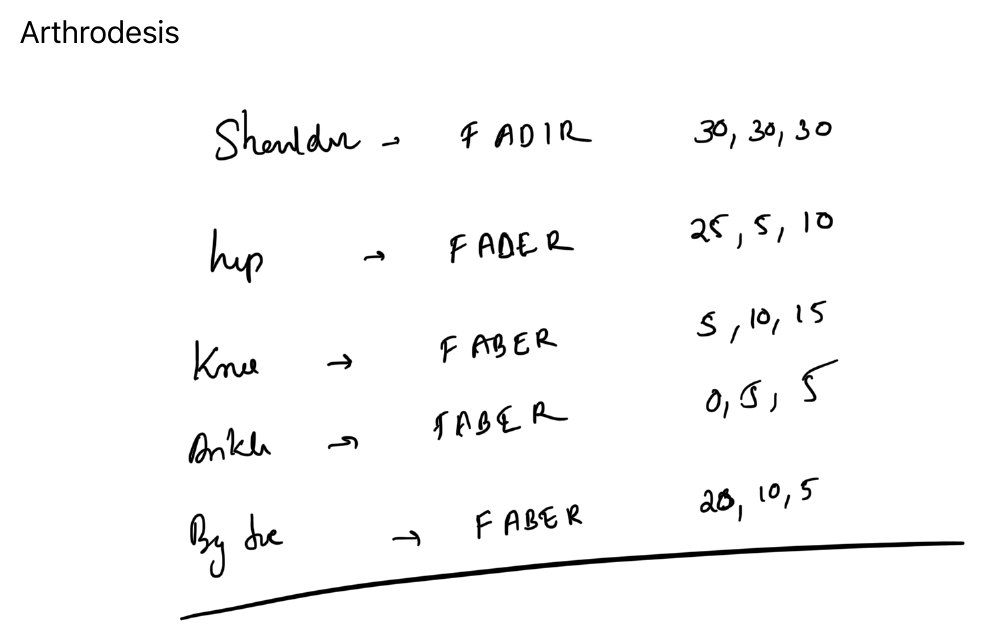 Arthrodesis
Shoulder → FADIR 30, 30, 30
hip → FADER 25, 5, 10
Knee → FABER 5, 10, 15
Ankle → FABER 0, 5, 5
Big toe → FABER 20, 10, 5